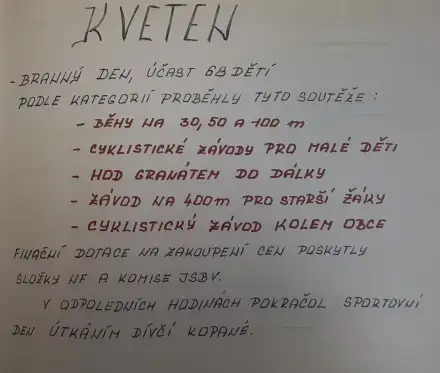 KVETEN
- BRANNÝ DEN, ÚČAST 68 DĚTÍ
PODLE KATEGORIÍ PROBĚHLY TYTO SOUTĚŽE :
- BĚHY NA 30, 50 A 100 m
- CYKLISTICKÉ ZÁVODY PRO MALÉ DĚTI
- HOD GRANÁTEM DO DÁLKY
- ZÁVOD NA 400 m PRO STARŠÍ ŽÁKY
- CYKLISTICKÝ ZÁVOD KOLEM OBCE
FINAČNÍ DOTACE NA ZAKOUPENÍ CEN POSKYTLY
SLOŽKY NF A KOMISE JSBV.
V ODPOLEDNÍCH HODINÁCH POKRAČOL SPORTOVNÍ
DEN ÚTKÁNÍM DÍVČÍ KOPANÉ.